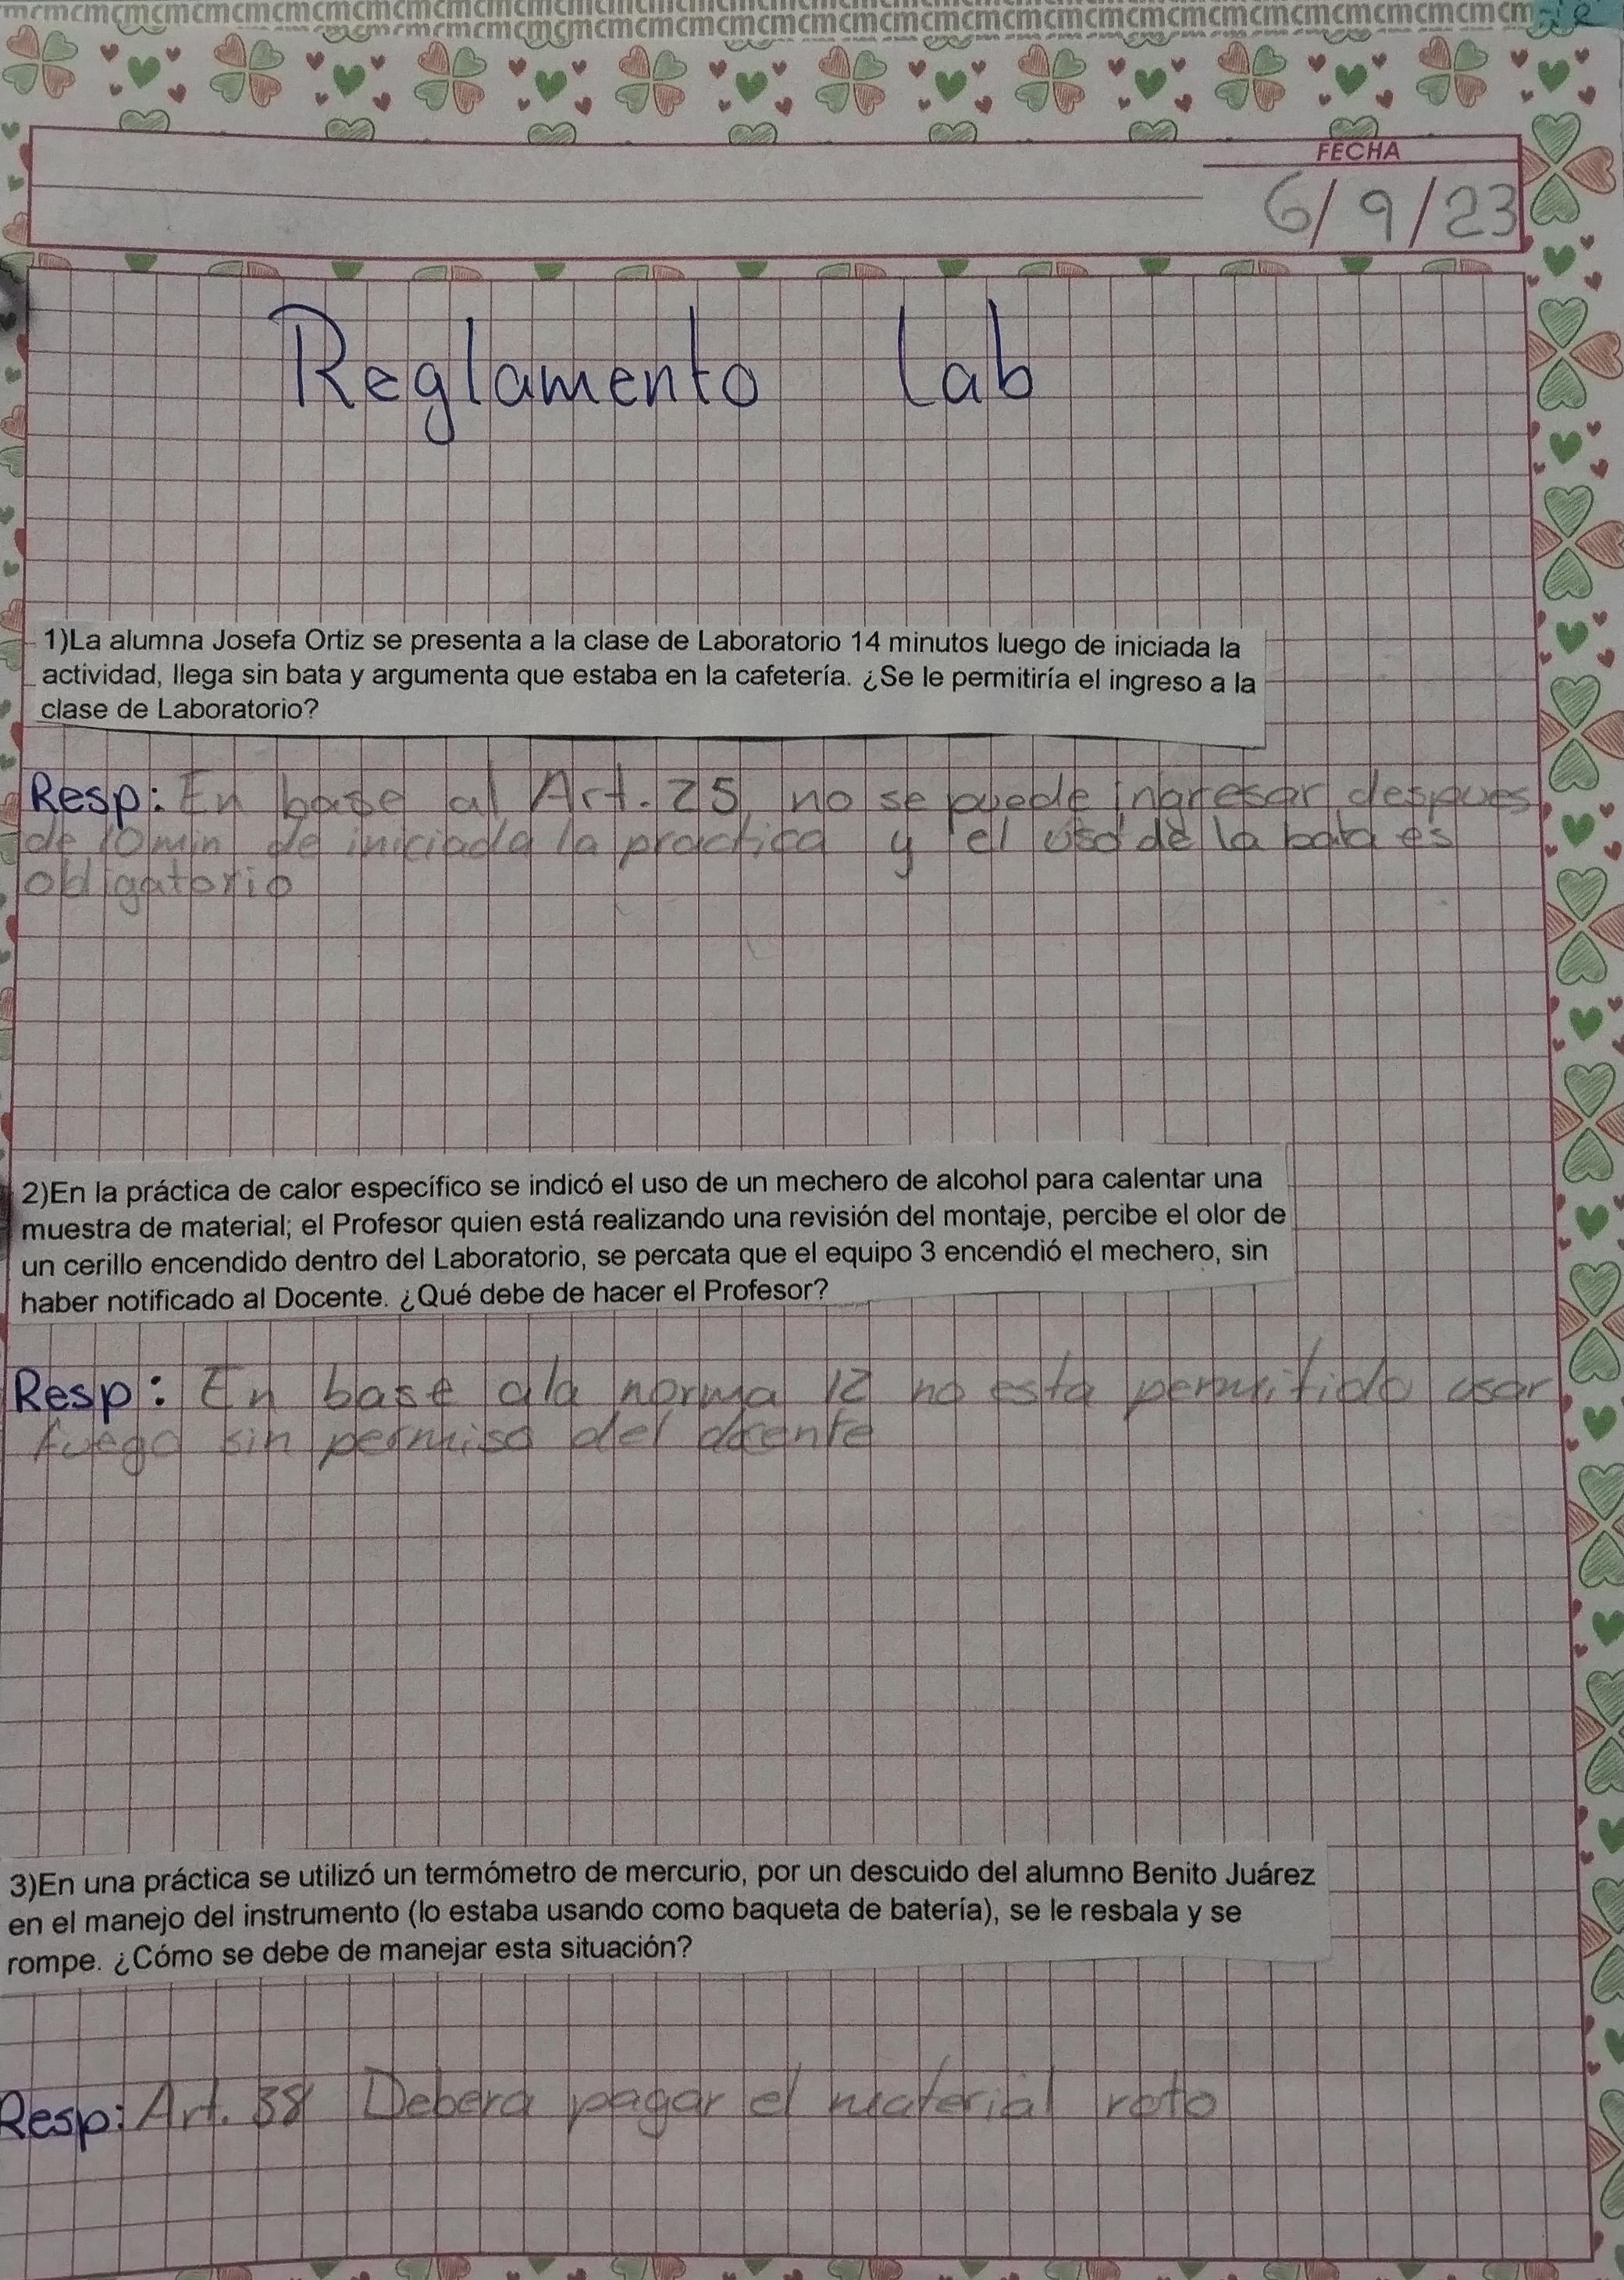 mcmcmcmcmcmcmcmcmcmcmcmcmcmcmcmcmcmcmcmcmcmcm
FECHA
6/9/23
Reglamento Lab
1)La alumna Josefa Ortiz se presenta a la clase de Laboratorio 14 minutos luego de iniciada la
actividad, llega sin bata y argumenta que estaba en la cafetería. ¿Se le permitiría el ingreso a la
clase de Laboratorio?
Resp: En base al Art. 25 no se puede ingresar despues
de 10min de iniciada la practica y el uso de la bata es
obligatorio
2)En la práctica de calor específico se indicó el uso de un mechero de alcohol para calentar una
muestra de material; el Profesor quien está realizando una revisión del montaje, percibe el olor de
un cerillo encendido dentro del Laboratorio, se percata que el equipo 3 encendió el mechero, sin
haber notificado al Docente. ¿Qué debe de hacer el Profesor?
Resp: En base a la norma 12 no esta permitido usar
fuego sin permiso del docente
3)En una práctica se utilizó un termómetro de mercurio, por un descuido del alumno Benito Juárez
en el manejo del instrumento (lo estaba usando como baqueta de batería), se le resbala y se
rompe. ¿Cómo se debe de manejar esta situación?
Resp: Art. 38 Debera pagar el material roto